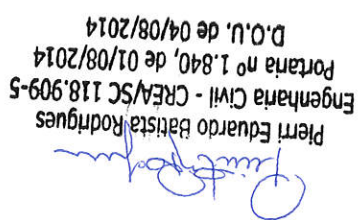 Pierri Eduardo Batista Rodrigues
Engenharia Civil - CREA/SC 118.909-5
Portaria nº 1.840, de 01/08/2014
D.O.U. de 04/08/2014